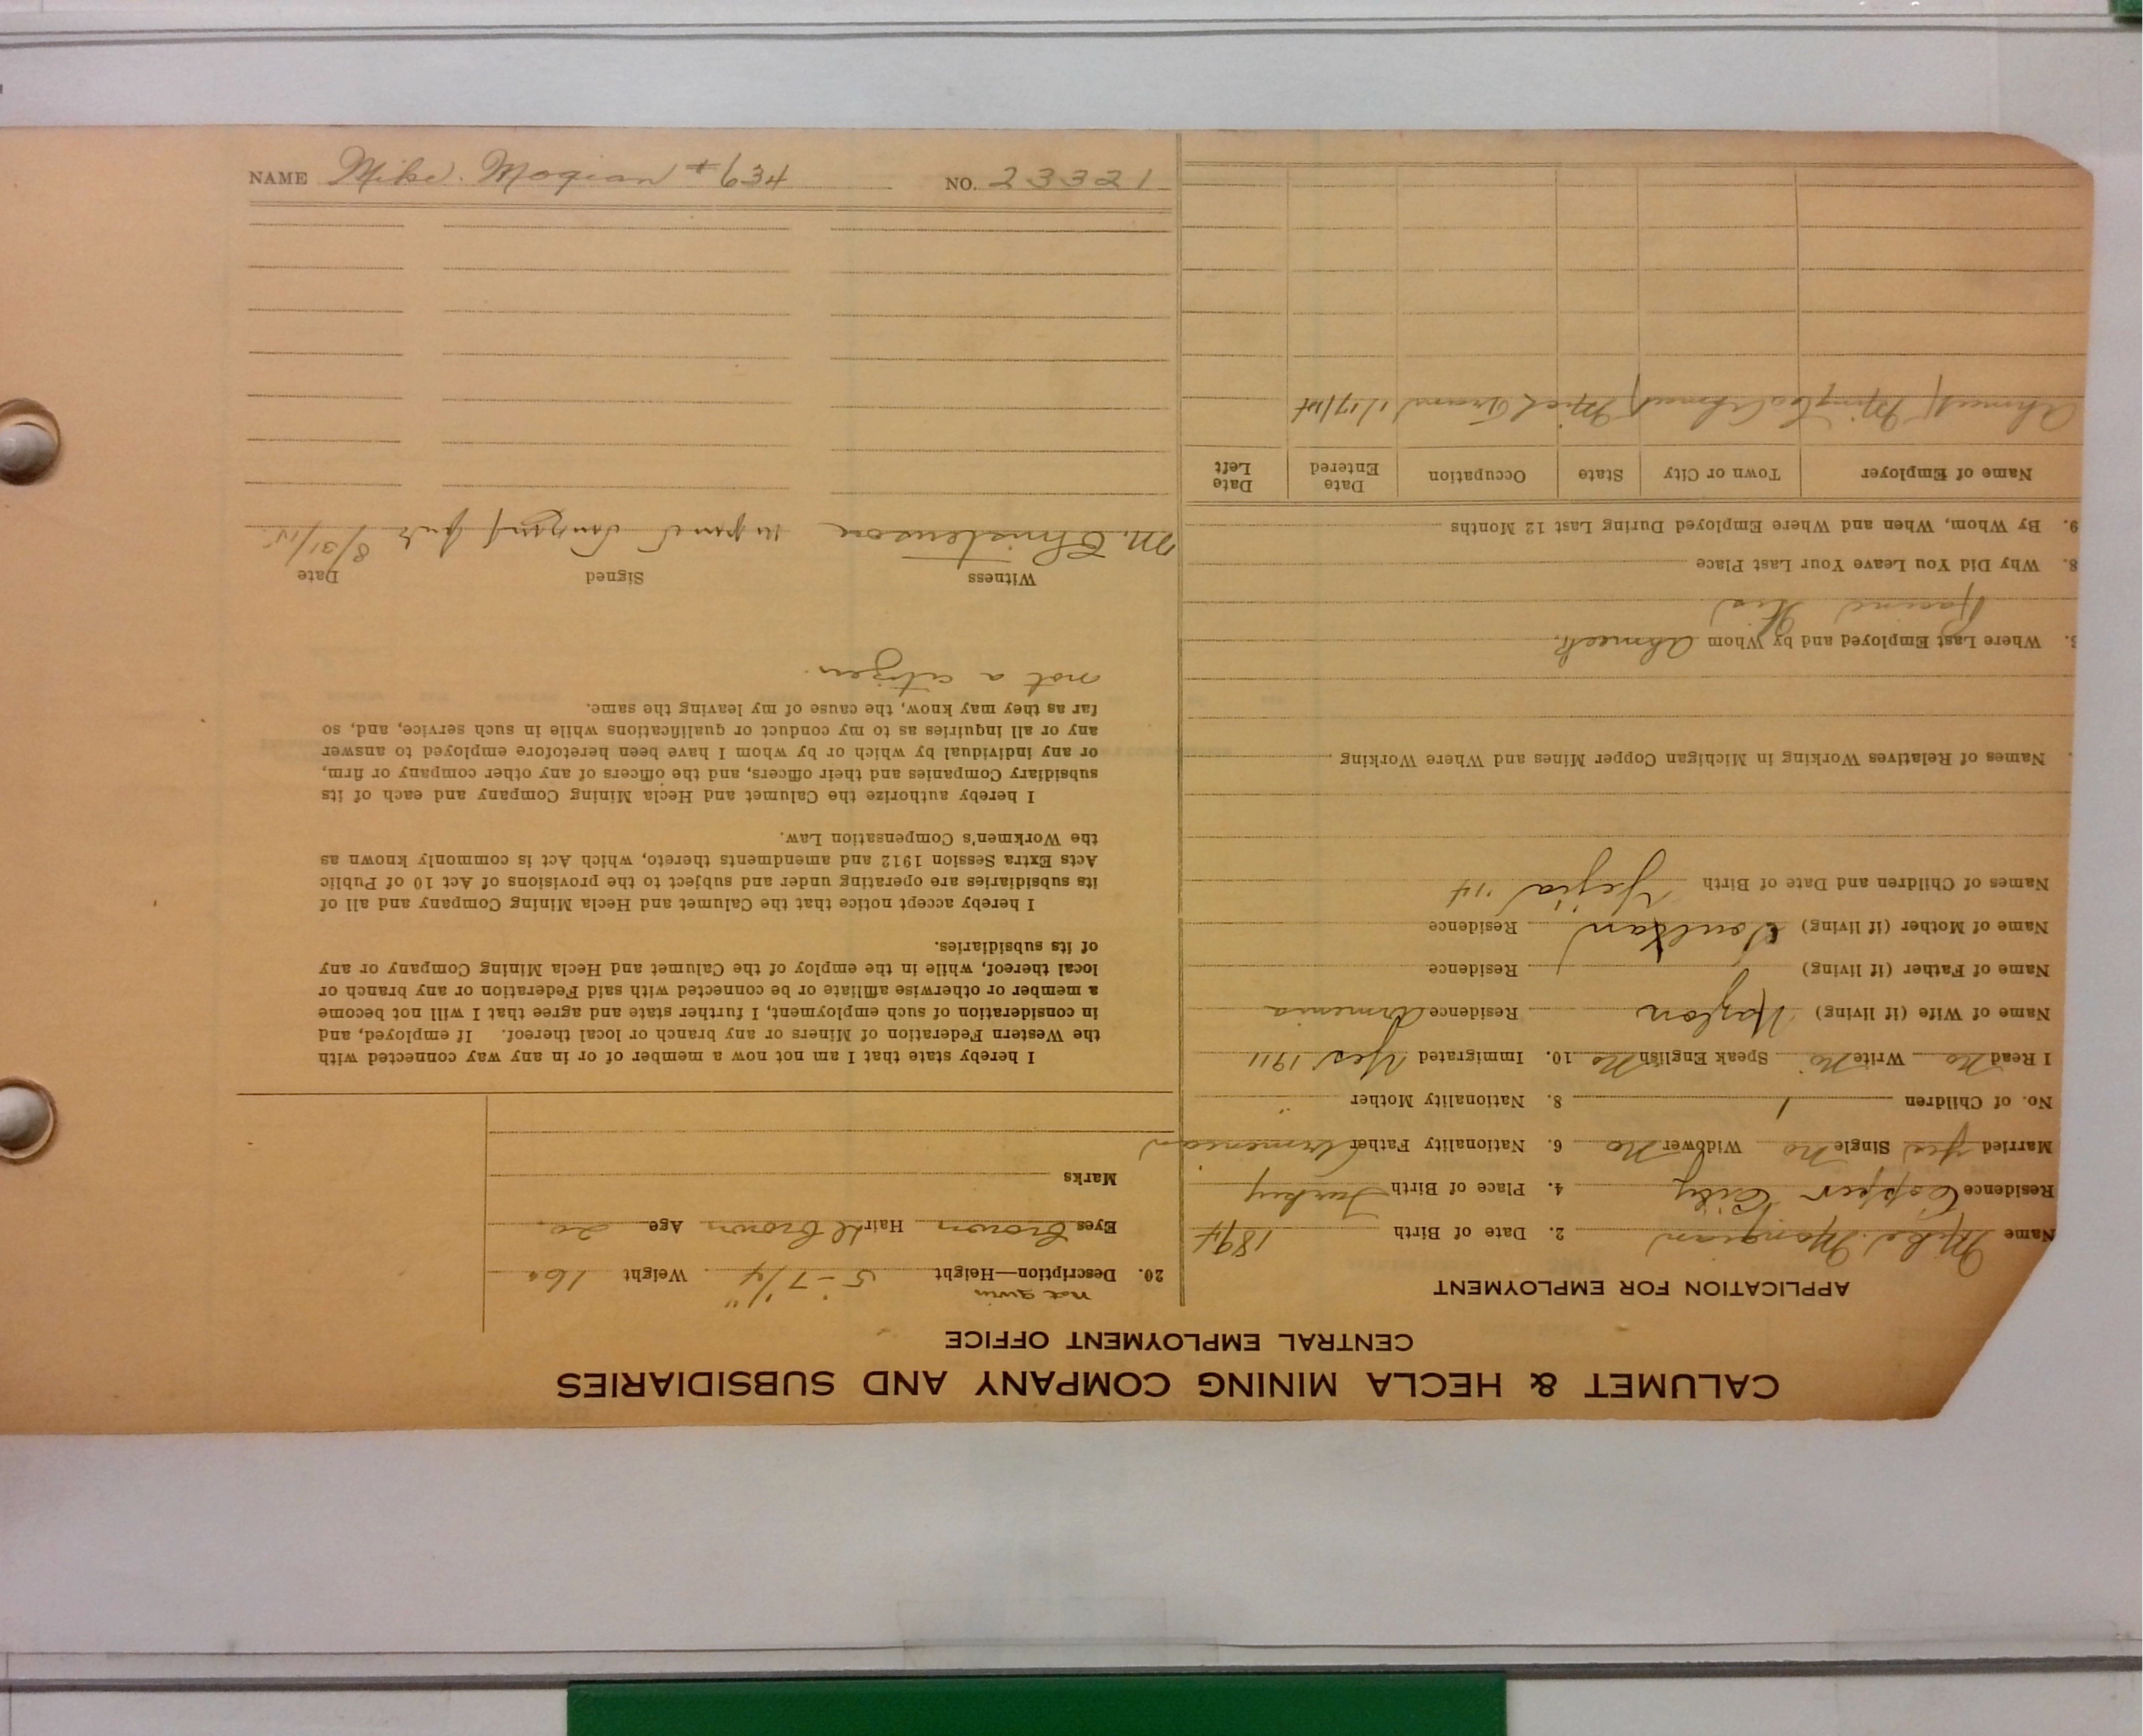 CALUMET & HECLA MINING COMPANY AND SUBSIDIARIES
CENTRAL EMPLOYMENT OFFICE
APPLICATION FOR EMPLOYMENT
Name Mike Mongian 2. Date of Birth 1894
Residence Copper City 4. Place of Birth Turkey
Married Yes Single No Widower No 6. Nationality Father Armenian
No. of Children 1 8. Nationality Mother "
I Read No Write No Speak English No 10. Immigrated Yes 1911
Name of Wife (if living) Hazlon Residence Armenia
Name of Father (if living) Residence
Name of Mother (if living) Soultan Residence
Names of Children and Date of Birth '14
Names of Relatives Working in Michigan Copper Mines and Where Working
Where Last Employed and by Whom Ahmeek
Racine Wis
8. Why Did You Leave Your Last Place
9. By Whom, When and Where Employed During Last 12 Months
Name of Employer Town or City State Occupation Date Entered Date Left
Ahmeek Ming Co Ahmeek Mich 11/17/14
not given
20. Description—Height 5-7 1/4" Weight 160
Eyes Brown Hair Brown Age 20
Marks
I hereby state that I am not now a member of or in any way connected with
the Western Federation of Miners or any branch or local thereof. If employed, and
in consideration of such employment, I further state and agree that I will not become
a member or otherwise affiliate or be connected with said Federation or any branch or
local thereof, while in the employ of the Calumet and Hecla Mining Company or any
of its subsidiaries.
I hereby accept notice that the Calumet and Hecla Mining Company and all of
its subsidiaries are operating under and subject to the provisions of Act 10 of Public
Acts Extra Session 1912 and amendments thereto, which Act is commonly known as
the Workmen's Compensation Law.
I hereby authorize the Calumet and Hecla Mining Company and each of its
subsidiary Companies and their officers, and the officers of any other company or firm,
or any individual by which or by whom I have been heretofore employed to answer
any or all inquiries as to my conduct or qualifications while in such service, and, so
far as they may know, the cause of my leaving the same.
not a citizen.
Witness Signed Date
M. Christenson 8/31/15
NAME Mike. Mogian #634 NO. 23321